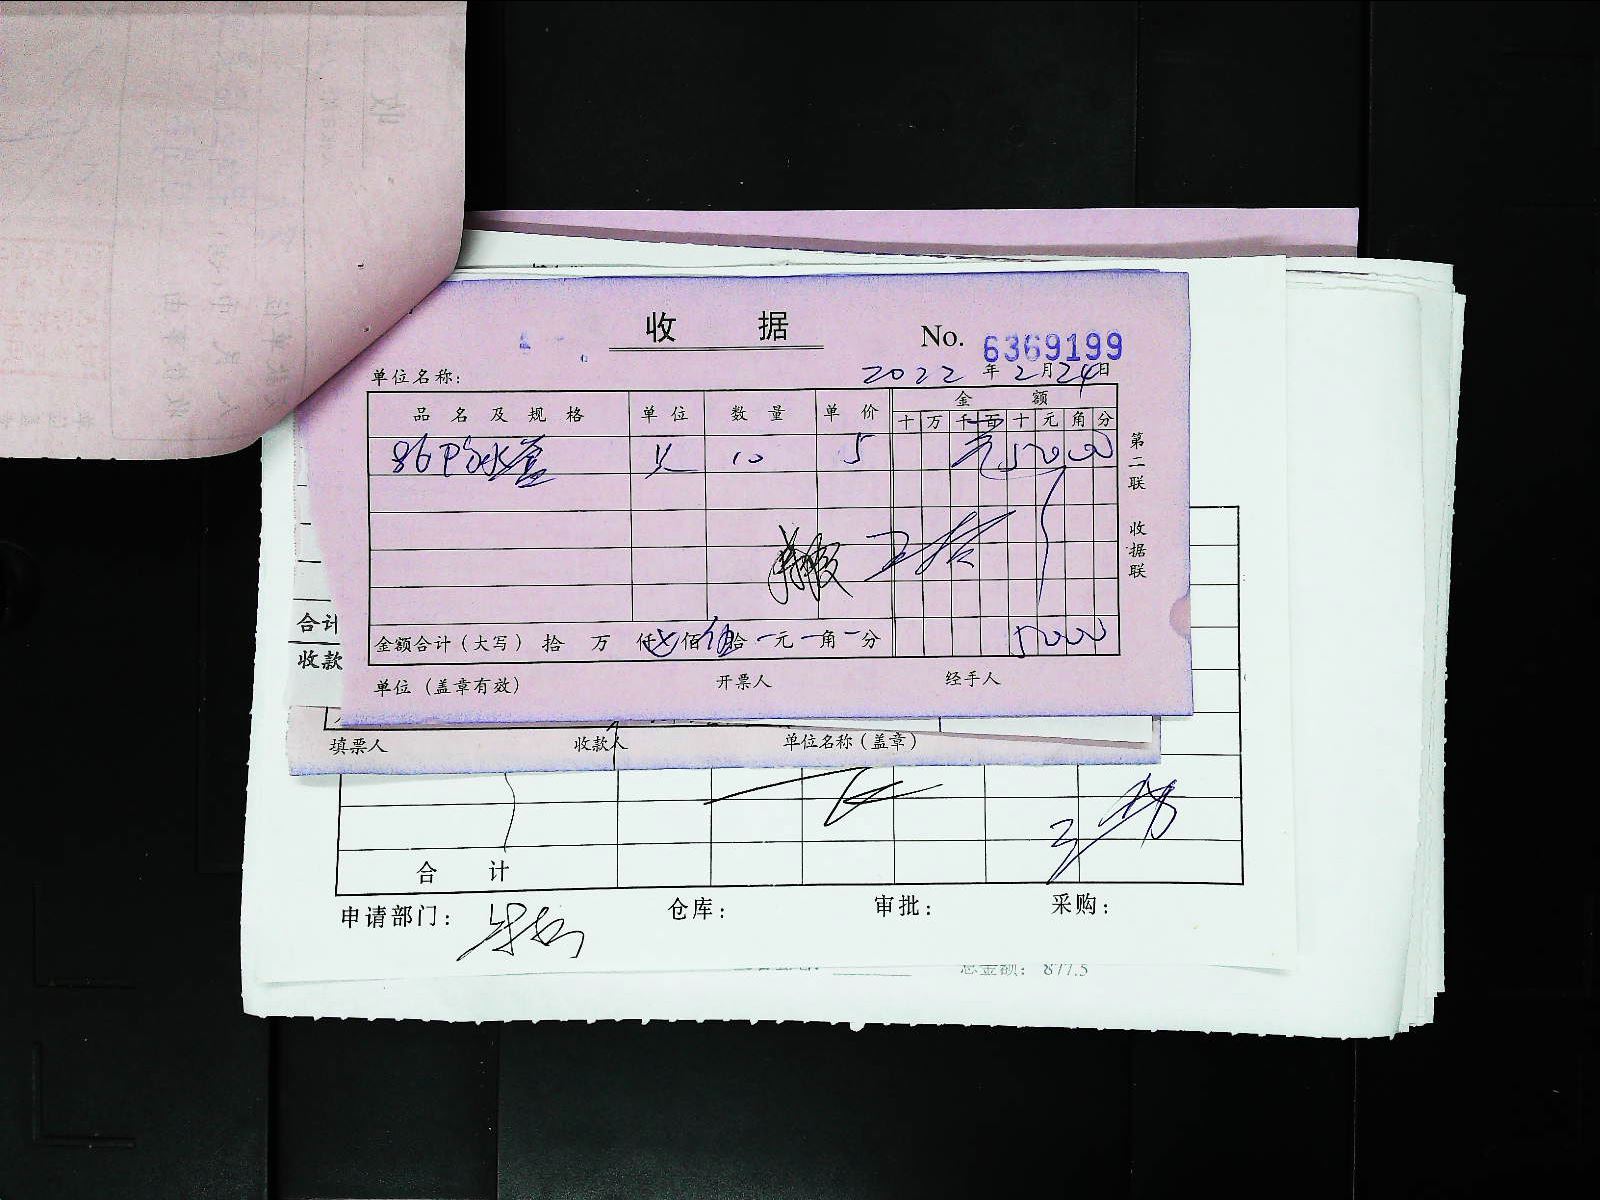 收 据
No. 6369199
单位名称:
2022 年 2 月 24 日
品 名 及 规 格 单 位 数 量 单 价 金 额
十 万 千 百 十 元 角 分
86防水盒 只 10 5 5000
第二联 收据联
金额合计(大写) 拾 万 仟 佰 伍拾 元 角 分 5000
单位(盖章有效) 开票人 经手人
合计
收款
填票人 收款人 单位名称(盖章)
合 计
申请部门: 仓库: 审批: 采购:
总金额: 877.5